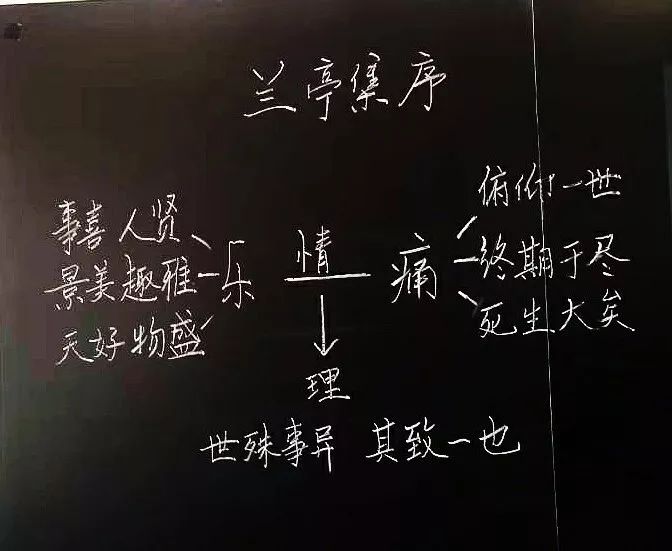 兰亭集序
事喜人贤
景美趣雅
天好物盛
乐 情 痛
俯仰一世
终期于尽
死生大矣
理
世殊事异 其致一也